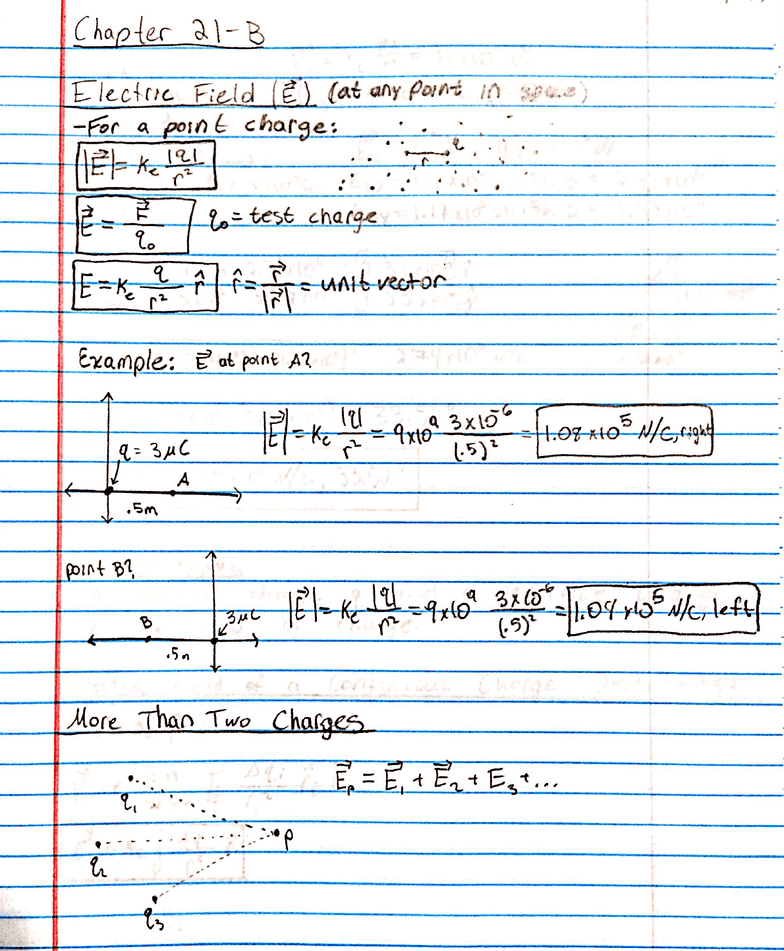 Chapter 21-B
Electric Field (E⃗) (at any point in space)
-For a point charge:
|E⃗| = Ke |q|/r²
r q
E⃗ = F⃗/q₀ q₀ = test charge
E = Ke q/r² r̂ r̂ = r⃗/|r⃗| = unit vector
Example: E⃗ at point A?
|E⃗| = Ke |q|/r² = 9x10⁹ 3x10⁻⁶/(.5)² = 1.08 x10⁵ N/C, right
q = 3μC
A
.5m
point B?
|E⃗| = Ke |q|/r² = 9x10⁹ 3x10⁻⁶/(.5)² = 1.08 x10⁵ N/C, left
B 3μC
.5m
More Than Two Charges
E⃗p = E⃗₁ + E⃗₂ + E₃ + ...
q₁
p
q₂
q₃